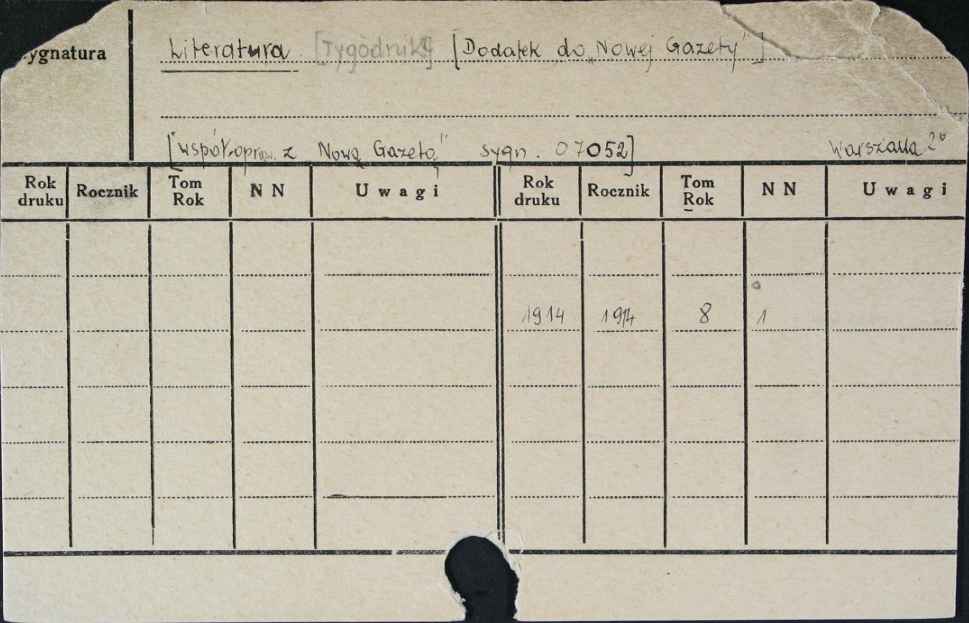 ygnatura
Literatura [Tygodnik] [Dodatek do „Nowej Gazety"]
[współopraw. z Nową Gazetą" sygn. 07052] Warszawa 2°
Rok druku Rocznik Tom Rok N N Uwagi Rok druku Rocznik Tom Rok N N Uwagi
1914 1914 8 1